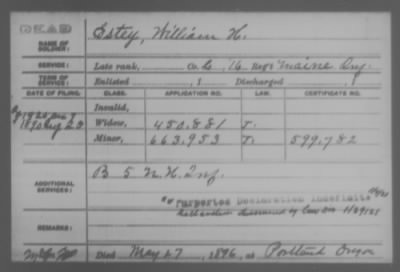 DEAD
NAME OF SOLDIER: Estey, William H.
SERVICE: Late rank, Co. G, 16 Reg't Maine Inf.
TERM OF SERVICE: Enlisted , 1 Discharged , 1
DATE OF FILING. CLASS. APPLICATION NO. LAW. CERTIFICATE NO.
Invalid,
Widow, 450.881 J.
1890 Aug 23 Minor, 663.953 J. 599.782
ADDITIONAL SERVICES: B 5 N.H. Inf.
"Purported Declaration Indefinite
REMARKS:
Died May 27, 1896, at Portland Oregon